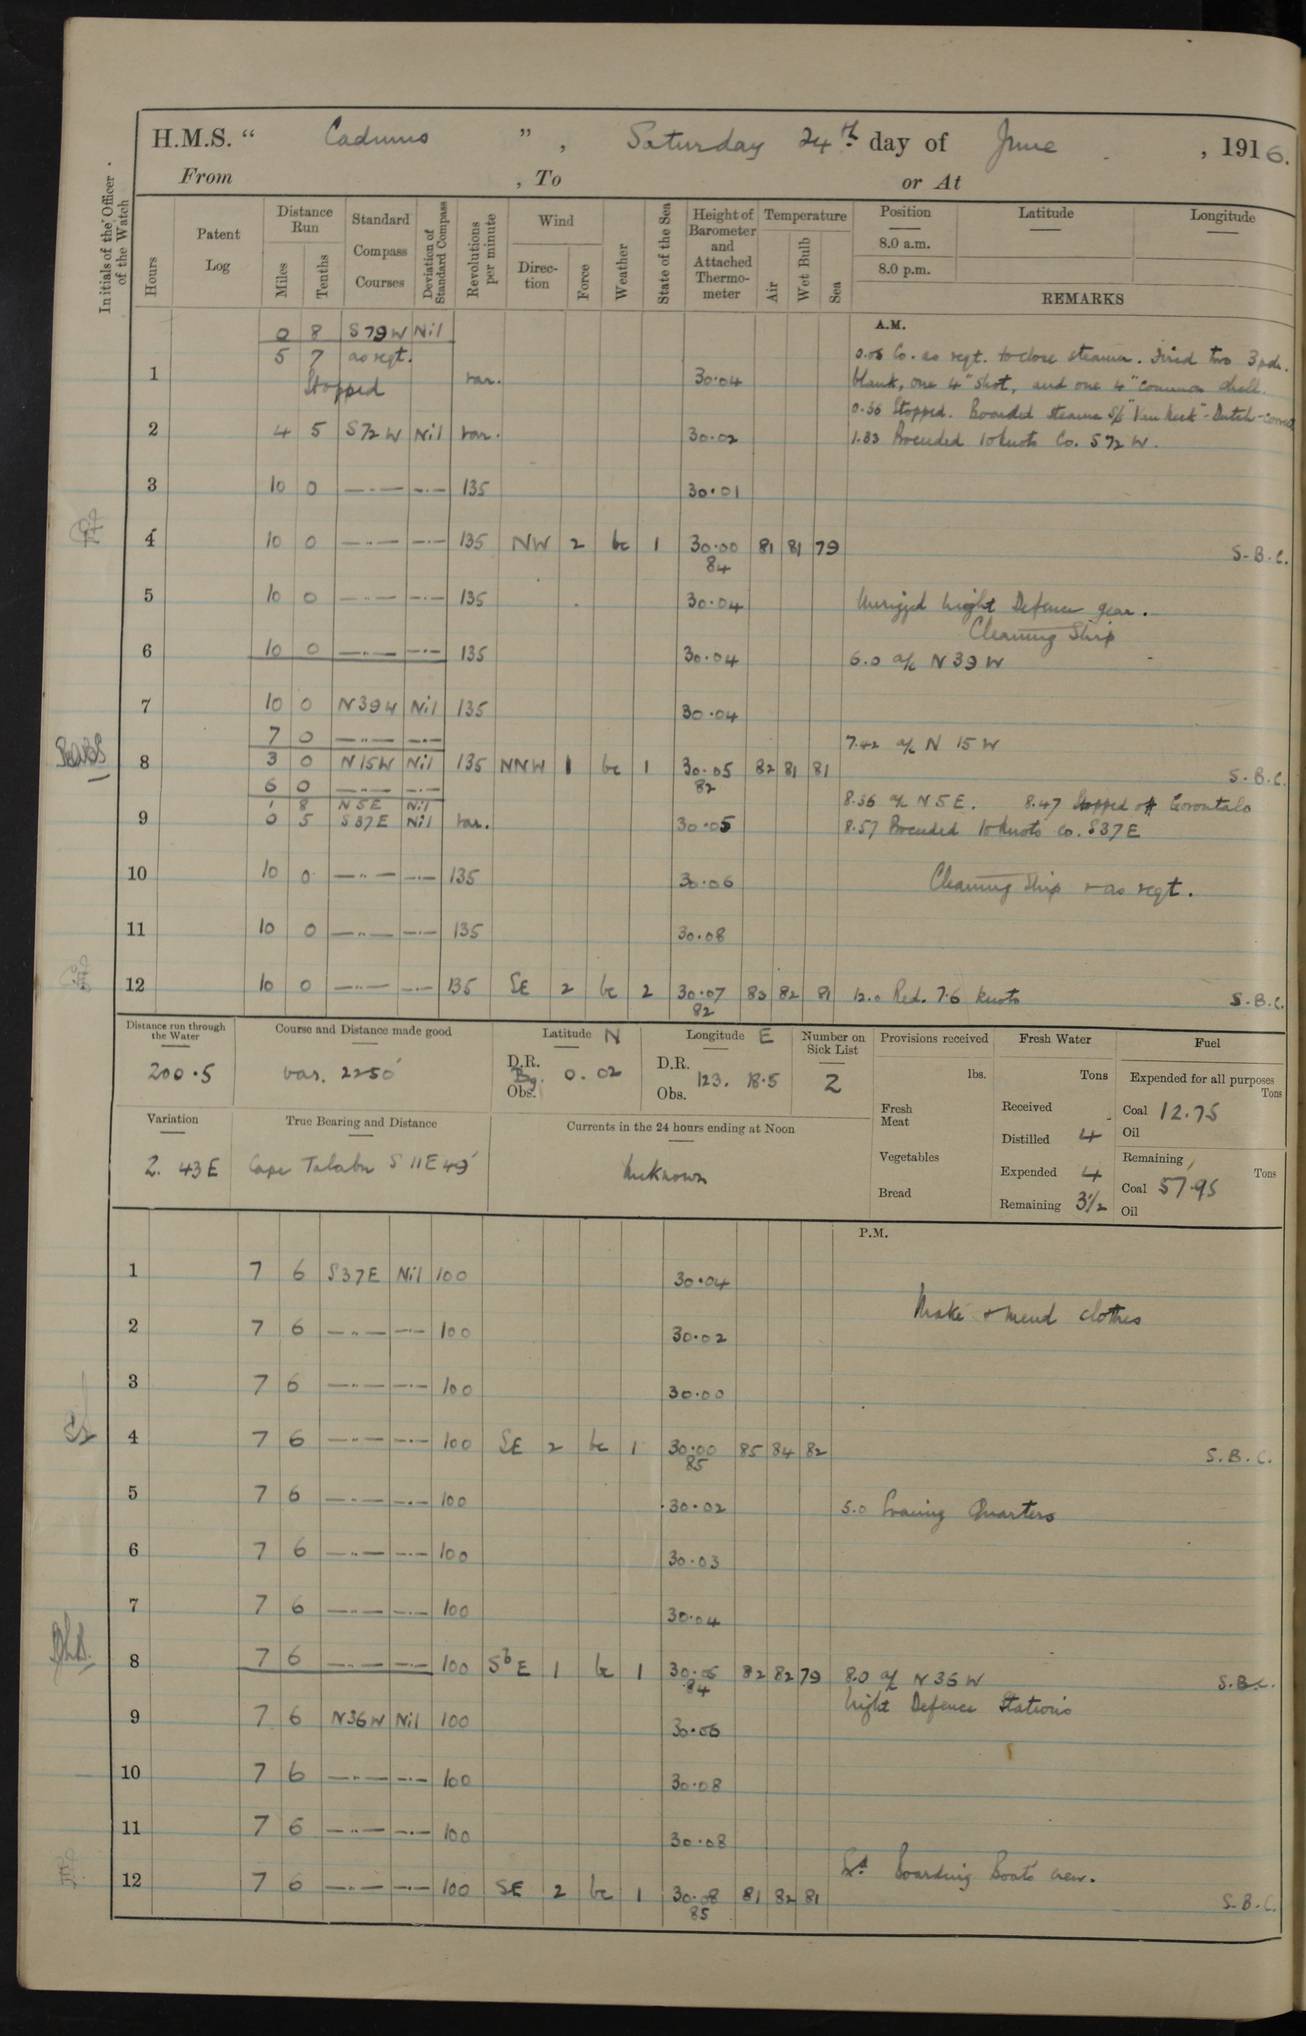 H.M.S. " Cadmus ", Saturday 24th day of June, 1916.
From , To or At
Initials of the Officer of the Watch
Hours
Patent Log
Distance Run
Miles
Tenths
Standard Compass Courses
Deviation of Standard Compass
Revolutions per minute
Wind
Direction
Force
Weather
State of the Sea
Height of Barometer and Attached Thermometer
Temperature
Air
Wet Bulb
Sea
Position
Latitude
Longitude
8.0 a.m.
8.0 p.m.
REMARKS
A.M.
0 8 S79W Nil
5 7 as reqt.
0.05 Co. as reqt. to close steamer. Fired two 3 pdr.
1 Stopped var. 30.04 blank, one 4" shot, and one 4" common shell.
0.56 Stopped. Boarded steamer S/S - Dutch - correct
2 4 5 S72W Nil var. 30.02 1.33 Proceeded 10 knots Co. S72W.
3 10 0 —··— —·— 135 30.01
4 10 0 —··— —·— 135 NW 2 bc 1 30.00 81 81 79 S.B.C.
84
5 10 0 —··— —·— 135 30.04 Unrigged Night Defence gear.
Cleaning Ship
6 10 0 —··— —·— 135 30.04 6.0 a/c N39W
7 10 0 N39W Nil 135 30.04
7 0 —··— —·— 7.42 a/c N 15 W
8 3 0 N15W Nil 135 NNW 1 bc 1 30.05 82 81 81 S.B.C.
6 0 —··— —·— 82
1 8 N5E Nil 8.36 a/c N5E. 8.47 Stopped off Gorontalo
9 0 5 S37E Nil var. 30.05 8.57 Proceeded 10 knots Co. S37E
10 10 0 —··— —·— 135 30.06 Cleaning Ship & as reqt.
11 10 0 —··— —·— 135 30.08
12 10 0 —··— —·— 135 SE 2 bc 2 30.07 83 82 81 12.0 Red. 7.6 knots S.B.C.
82
Distance run through the Water
200.5
Course and Distance made good
var. 2250'
Latitude N
D.R.
Bg.
Obs.
0.02
Longitude E
D.R.
Obs.
123. 18.5
Number on Sick List
2
Provisions received
lbs.
Fresh Meat
Vegetables
Bread
Fresh Water
Tons
Received
Distilled 4
Expended 4
Remaining 3½
Fuel
Expended for all purposes
Tons
Coal 12.75
Oil
Remaining
Tons
Coal 57.95
Oil
Variation
2. 43 E
True Bearing and Distance
Cape Talabu S 11 E 49'
Currents in the 24 hours ending at Noon
Unknown
P.M.
1 7 6 S37E Nil 100 30.04
Make & mend clothes
2 7 6 —··— —·— 100 30.02
3 7 6 —··— —·— 100 30.00
4 7 6 —··— —·— 100 SE 2 bc 1 30.00 85 84 82 S.B.C.
85
5 7 6 —··— —·— 100 30.02 5.0 Evening Quarters
6 7 6 —··— —·— 100 30.03
7 7 6 —··— —·— 100 30.04
8 7 6 —··— —·— 100 SbE 1 bc 1 30.06 82 82 79 8.0 a/c N36W S.B.C.
84
Night Defence Stations
9 7 6 N36W Nil 100 30.06
10 7 6 —··— —·— 100 30.08
11 7 6 —··— —·— 100 30.08
Boarding Boats crew.
12 7 6 —··— —·— 100 SE 2 bc 1 30.08 81 82 81 S.B.C.
85